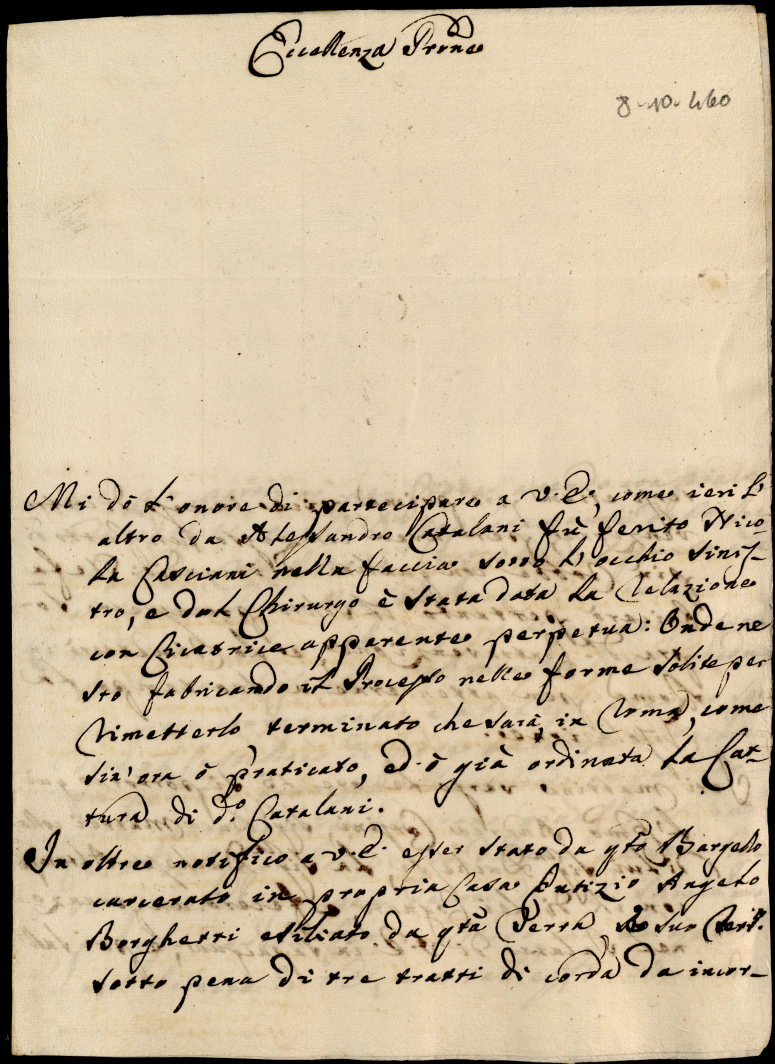 Eccellenza Prone
8-10-460
Mi dò l'onore di partecipare a V.E., come ieri l'
altro da Alessandro Catalani fù ferito Nico-
la Casciani nella faccia sotto l'occhio sinis-
tro, e dal Chirurgo è stata data la relazione
con Cicatrice apparente perpetua: Onde ne
sto fabricando il Processo nelle forme solite per
rimetterlo, terminato che sarà, in Roma, come
sin'ora ò praticato, ed ò già ordinata la Cat-
tura di do. Catalani.
In oltre notifico a V.E. esser stato da qto Bargello
carcerato in propria Casa Putizio Angelo
Borghetti esiliato da qta Terra, e suo
sotto pena di tre tratti di corda da incor-